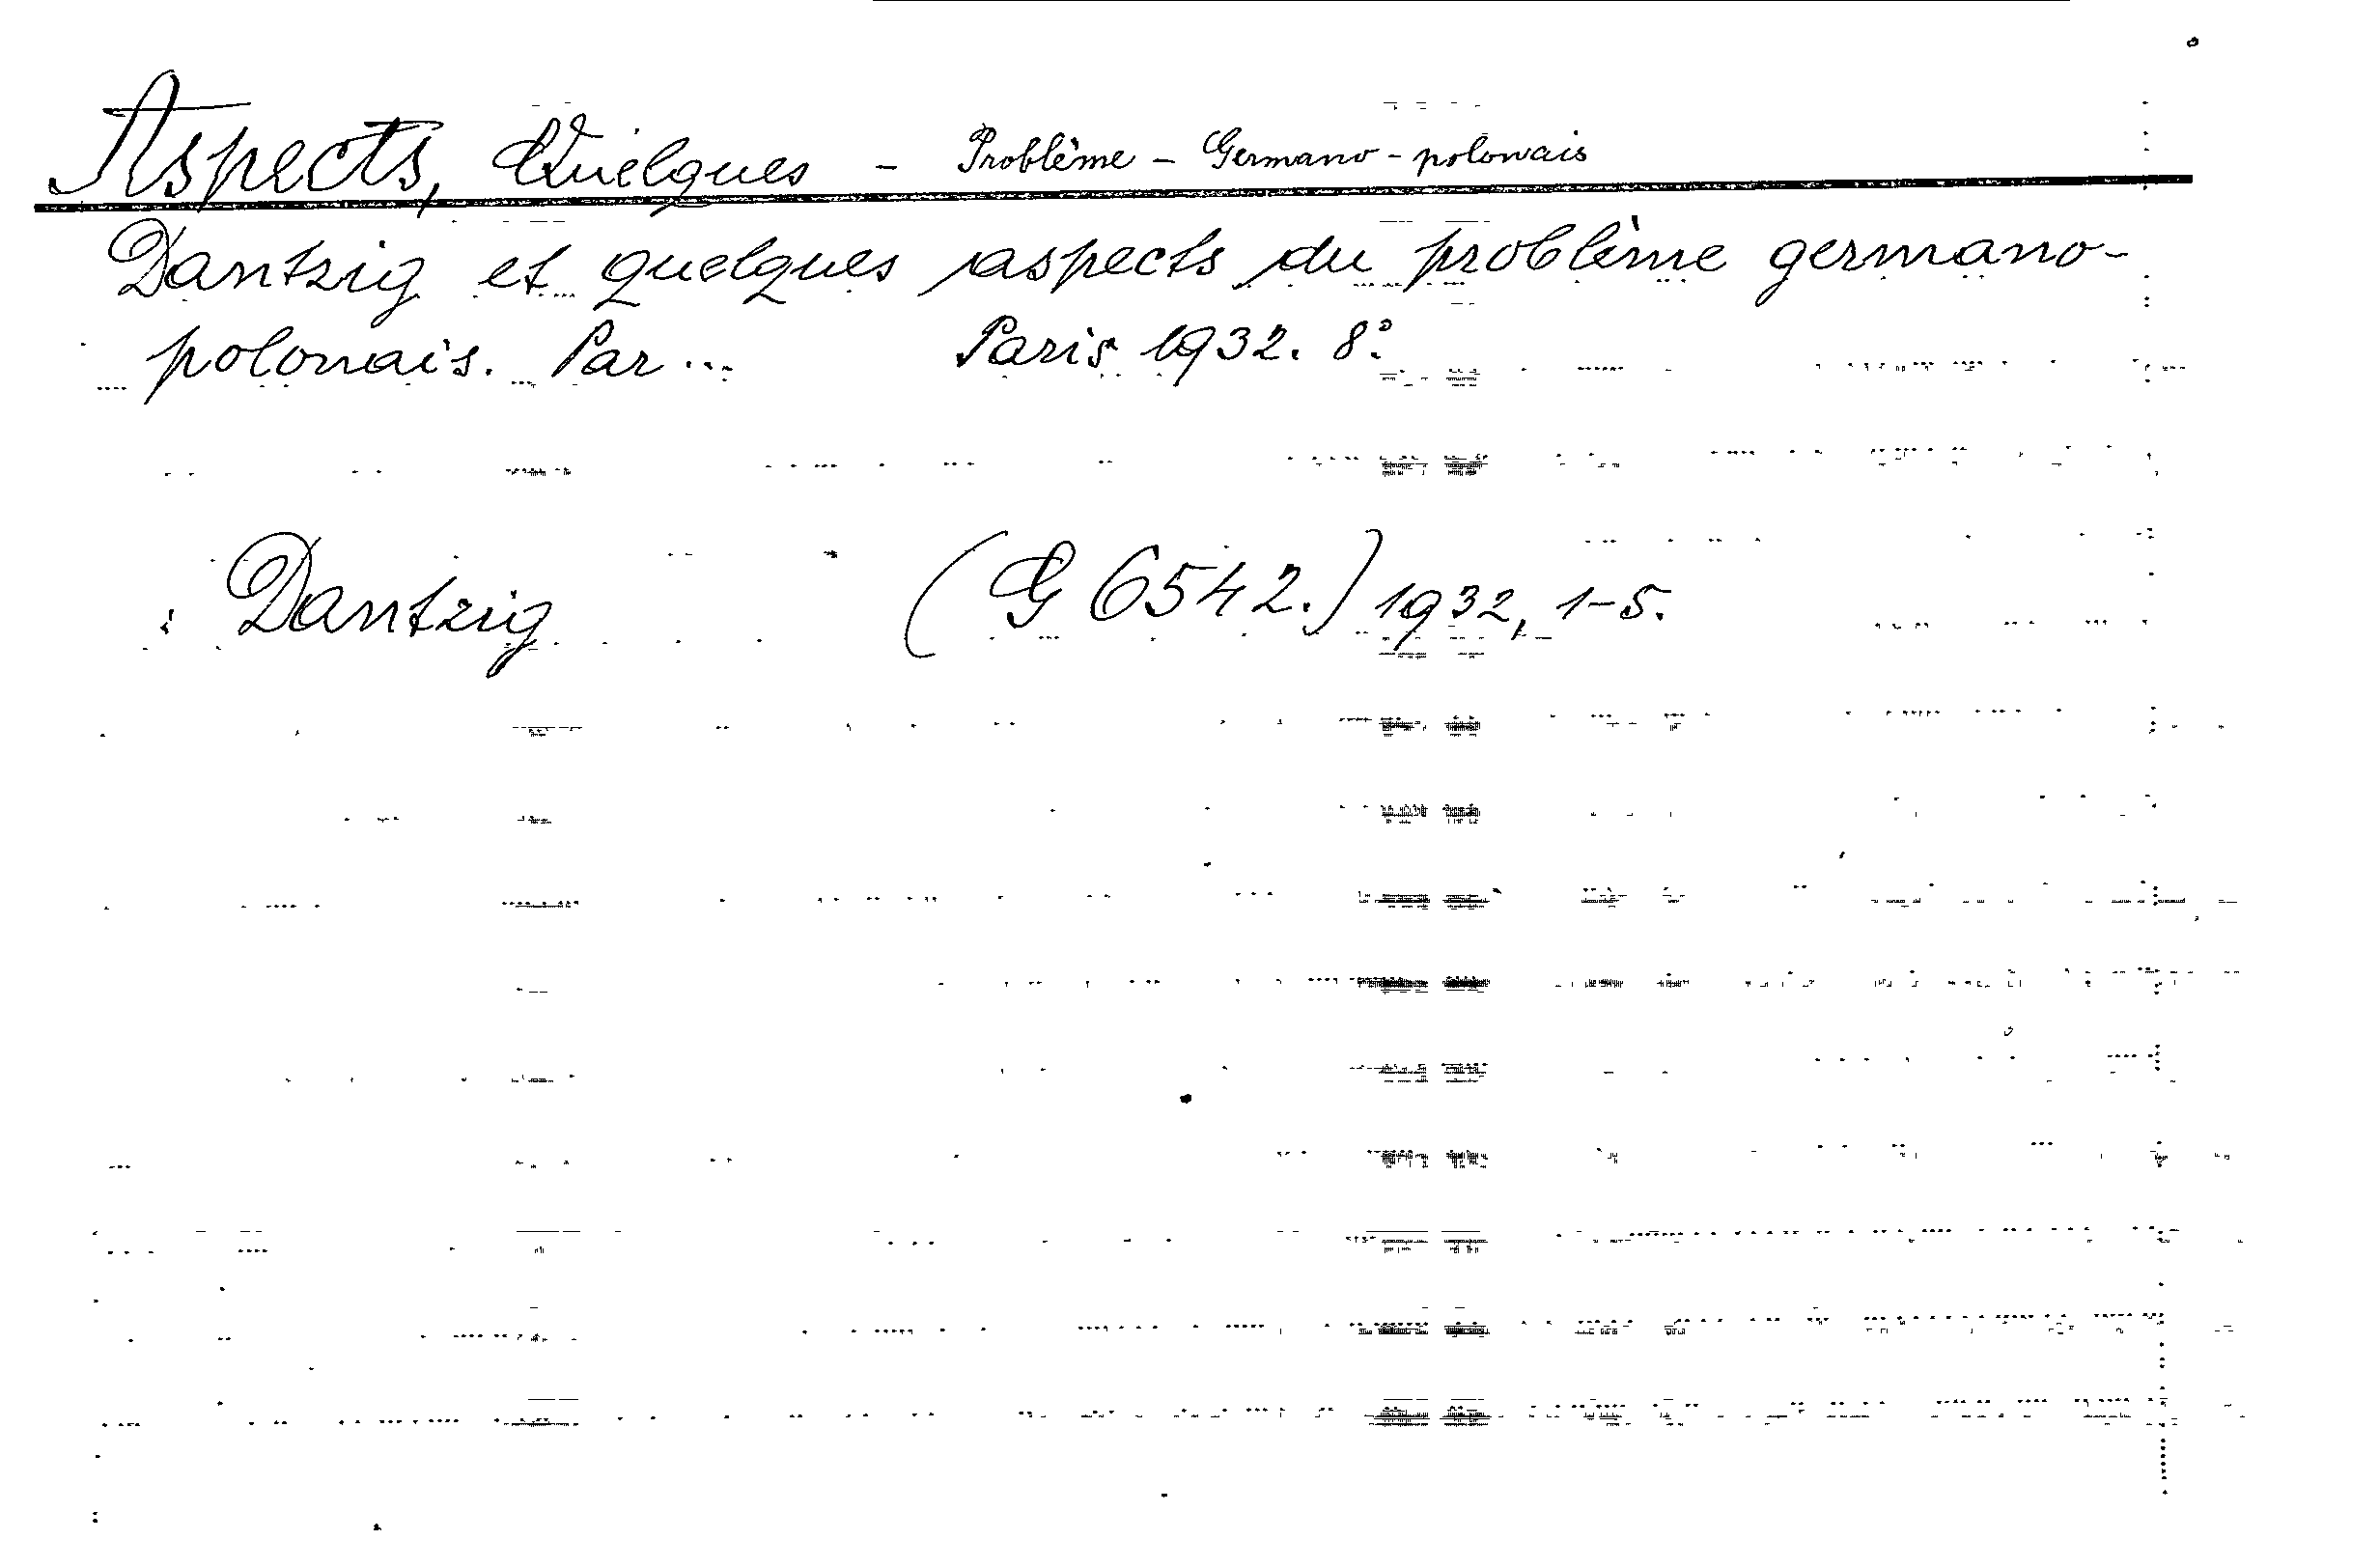 Aspects, Quelques - Problême - Germano-polonais
Dantzig et quelques aspects du problême germano-
polonais. Par ... Paris 1932. 8°.
: Dantzig (G 6542.) 1932, 1-5.